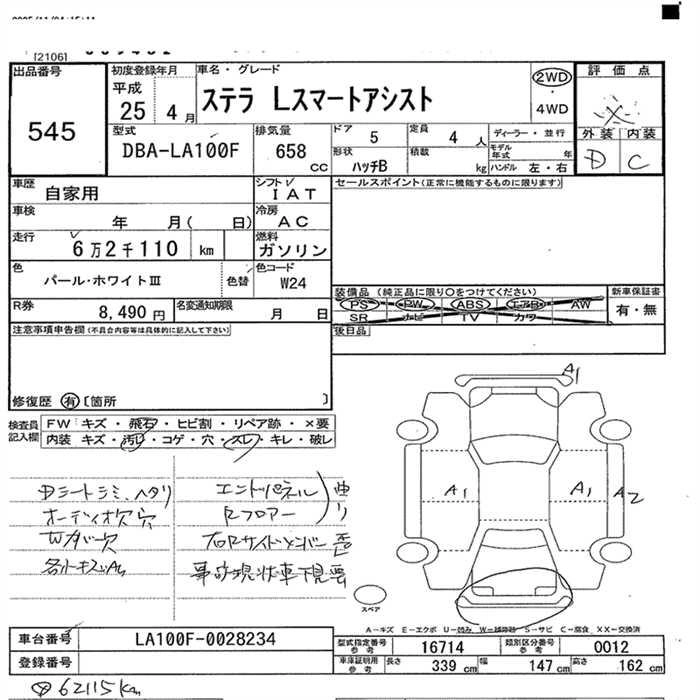 [2106]
出品番号
545
初度登録年月
平成
25 4月
車名・グレード
ステラ Lスマートアシスト
2WD
・
4WD
評価点
※
外装 内装
D C
型式
DBA-LA100F
排気量
658 cc
ドア 5
定員 4 人
形状 ハッチB
積載 kg
ディーラー・並行
モデル年式 年
ハンドル 左・右
車歴 自家用
シフト IAT
セールスポイント(正常に機能するものに限ります)
車検 年 月( 日)
冷房 AC
走行 6万2千110 km
燃料 ガソリン
色 パール・ホワイトIII
色替
色コード W24
装備品 (純正品に限り○をつけてください)
PS PW ABS エアB AW
SR ナビ TV カワ
新車保証書
有・無
R券 8,490 円
名変通知期限 月 日
注意事項申告欄(不具合内容等は具体的に記入して下さい)
後日品
修復歴 有 〔箇所 〕
検査員記入欄
FW キズ・飛石・ヒビ割・リペア跡・×要
内装 キズ・汚レ・コゲ・穴・スレ・キレ・破レ
Dシートシミ、ヘタリ
オーディオ欠 穴
Wカバー欠
エンドパネル
Rフロアー
曲り
事故現状車下見要
A1
A1
A1
A2
スペア
A−キズ E−エクボ U−凹み W−補修跡 S−サビ C−腐食 XX−交換済
車台番号 LA100F-0028234
登録番号
型式指定番号参考 16714
類別区分番号参考 0012
車庫証明用参考 長さ 339 cm 幅 147 cm 高さ 162 cm
62115km